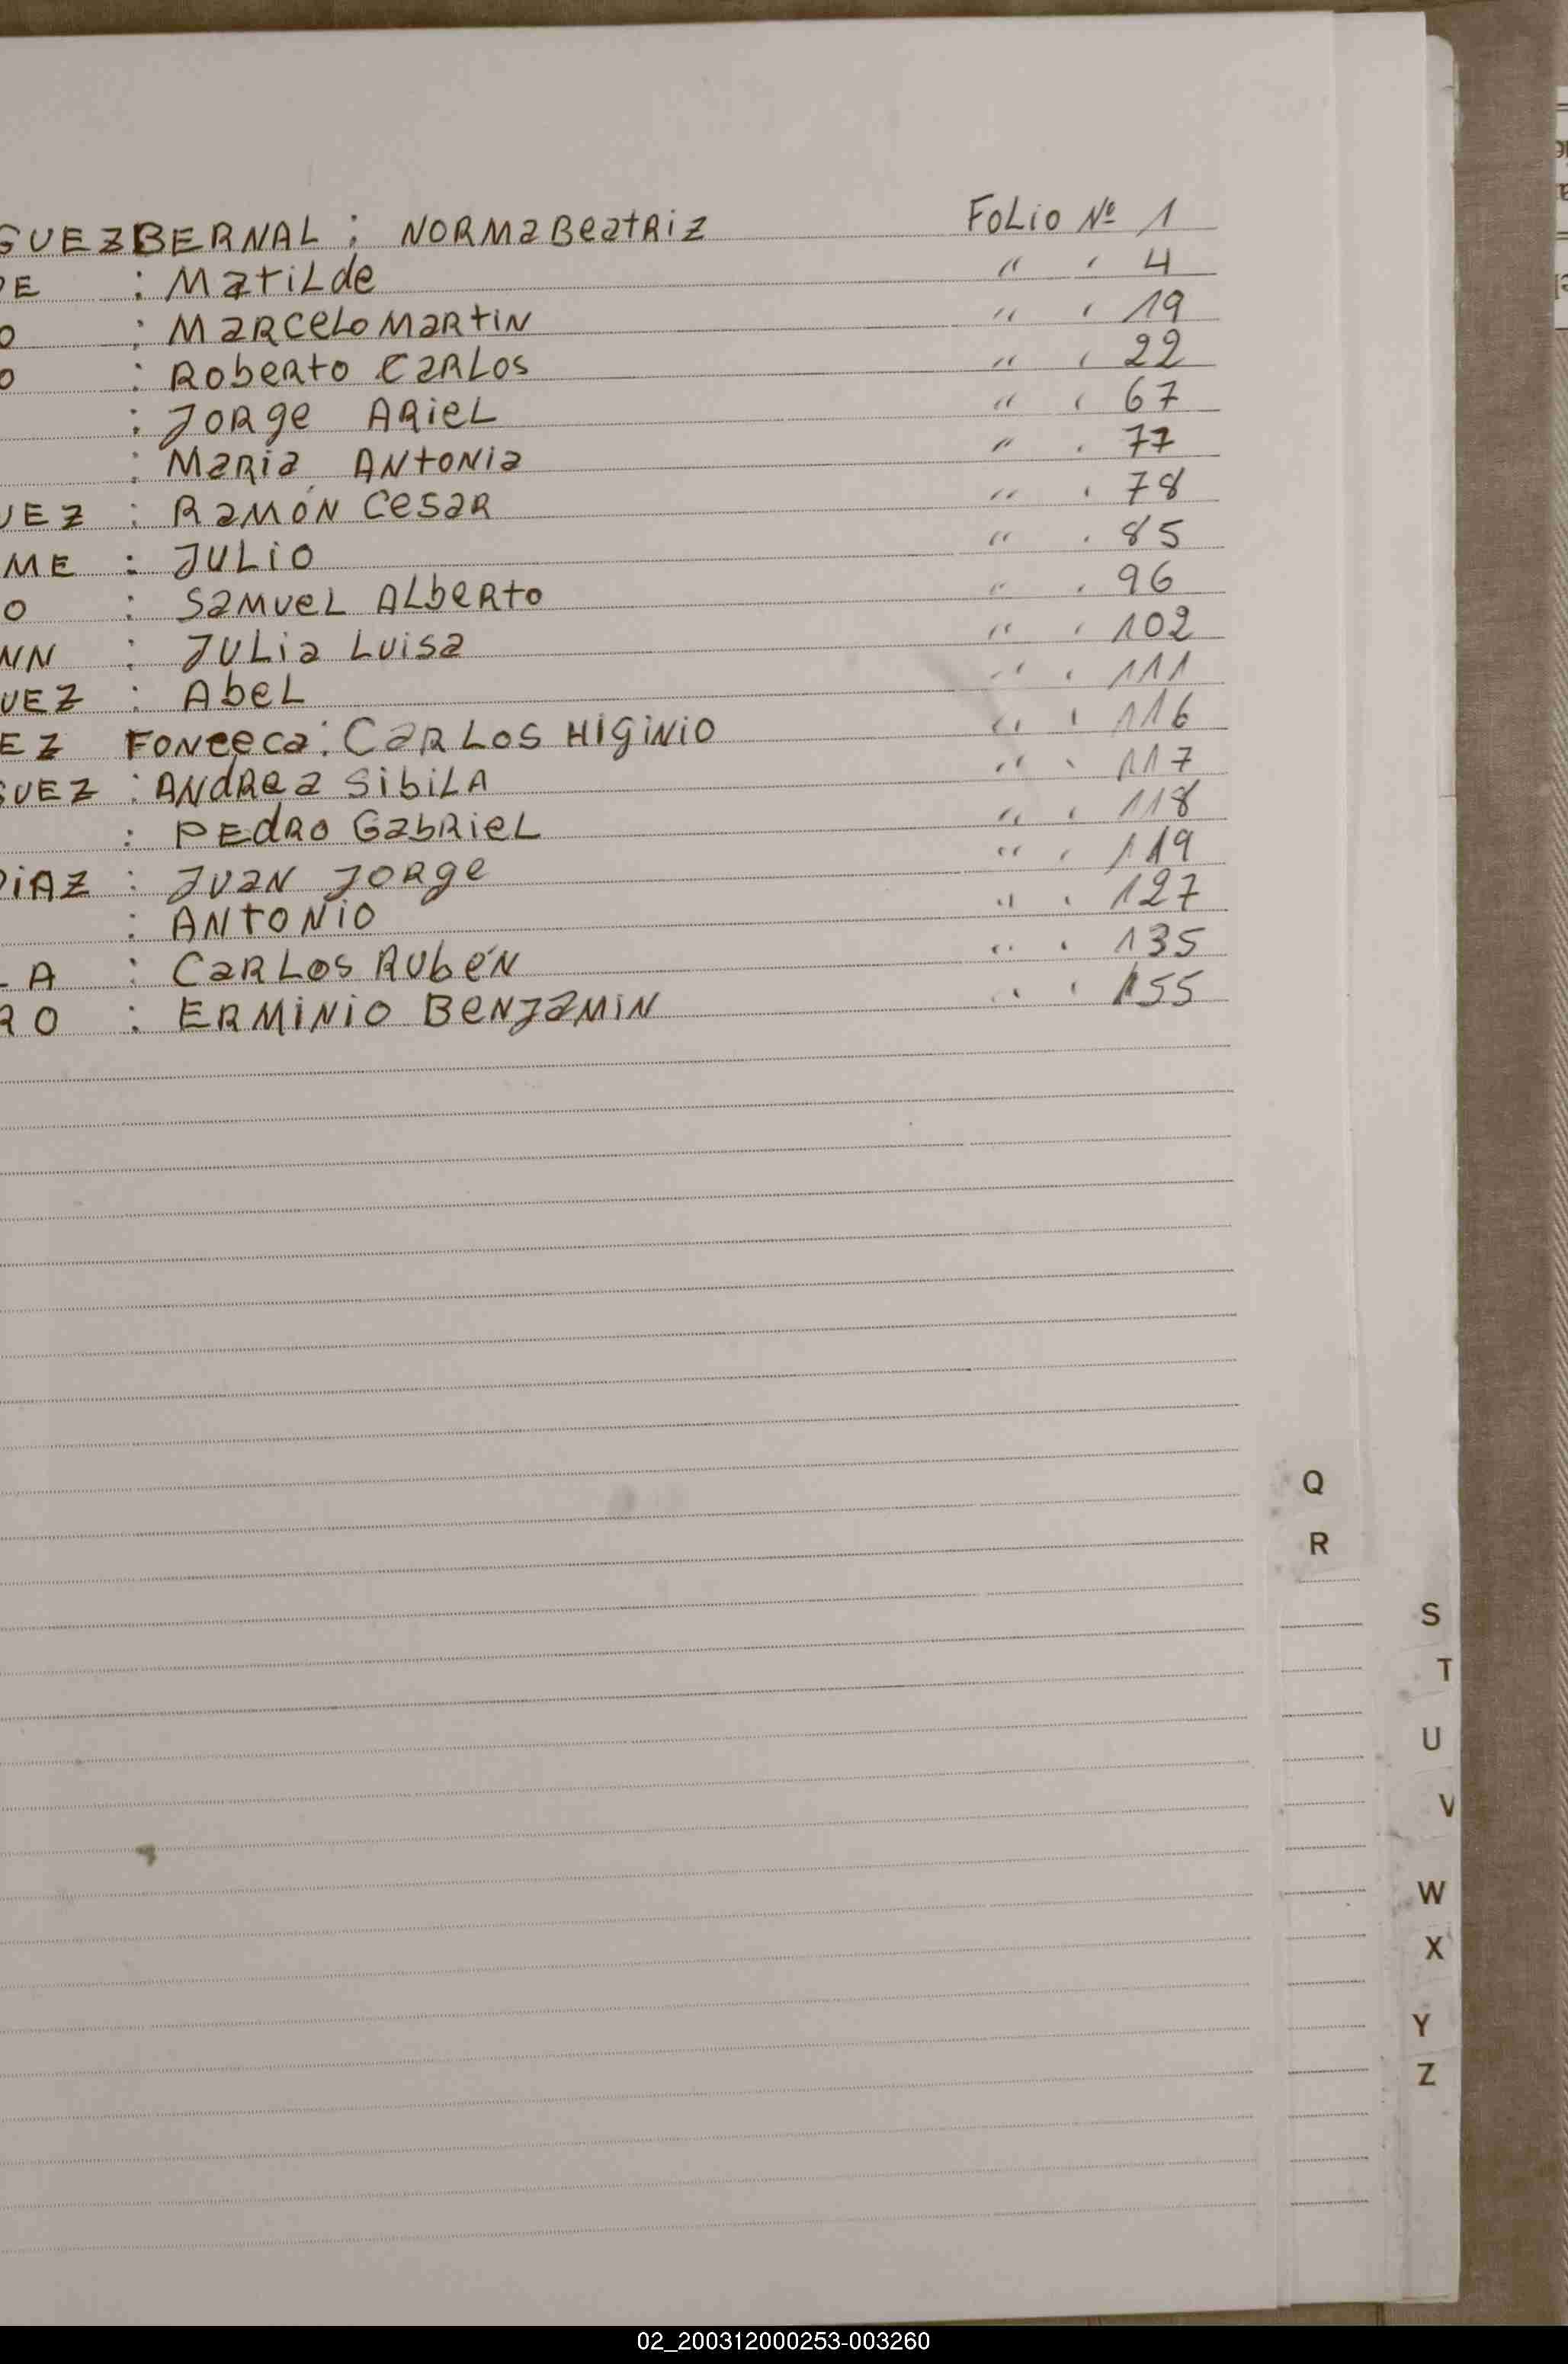 GUEZ BERNAL : NORMA BeatRiz FOLiO Nº 1
DE : MatiLde " " 4
O : MARCeLO MARtiN " " 19
O : RobeRto CARLos " " 22
: JORge ARieL " " 67
: MARia ANtoNia " " 77
UEZ : RaMÓN CesaR " " 78
ME : JULiO " " 85
O : SaMUeL ALbeRto " " 96
NN : JULia Luisa " " 102
UEZ : AbeL " " 111
EZ FONceca : CaRLos HiginiO " " 116
GUEZ : ANdRea SibiLA " " 117
: PEdRO GabRieL " " 118
DiAZ : JuaN JORge " " 119
: ANTONiO " " 127
LA : CaRLos RubéN " " 135
RO : ERMiNiO BeNJaMiN " " 155
Q
R
S
T
U
V
W
X
Y
Z
02_200312000253-003260